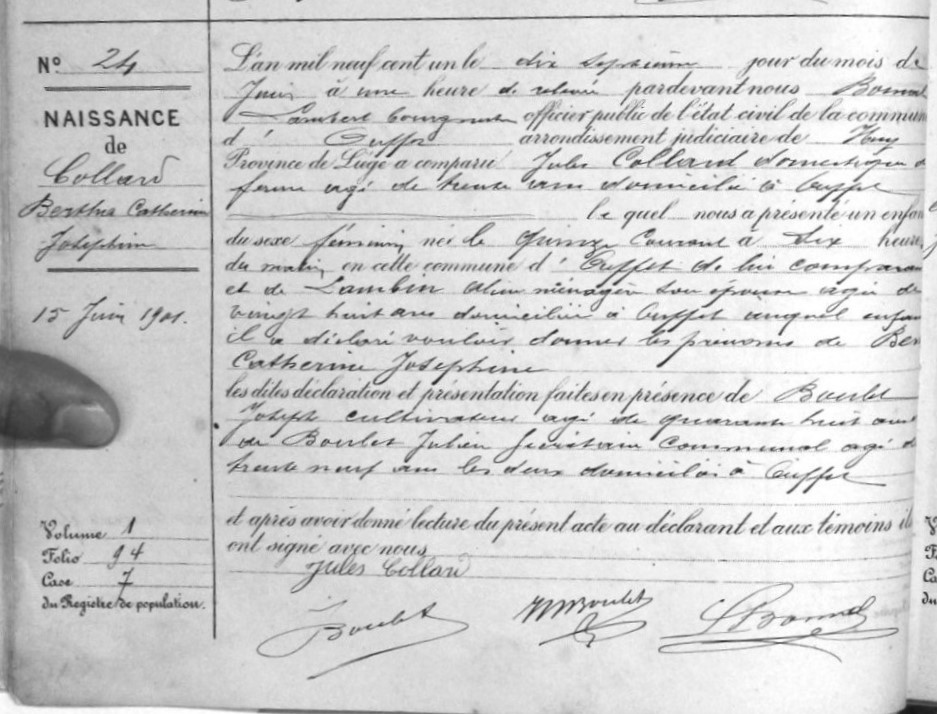 N° 24
NAISSANCE
de
Collard
Bertha Catherine
Joséphine
15 Juin 1901.
Volume 1
Folio 94
Case 7
du Registre de population.
L'an mil neuf cent un le dix septième jour du mois de
Juin à une heure de relevée pardevant nous Bonnet
Lambert bourgmestre officier public de l'état civil de la commune
d' Ouffet arrondissement judiciaire de Huy
Province de Liège a comparu Jules Collard domestique de
ferme agé de trente ans domicilié à Ouffet
le quel nous a présenté un enfan
du sexe féminin née le quinze courant à six heures
du matin en cette commune d'Ouffet de lui comparant
et de Lambin ménagère son épouse agée de
vingt huit ans domiciliée à Ouffet auquel enfant
il a déclaré vouloir donner les prénoms de Ber
Catherine Joséphine
les dites déclaration et présentation faites en présence de Boulet
Joseph cultivateur agé de quarante huit ans
de Boulet Julien Secrétaire communal agé de
trente neuf ans les deux domiciliés à Ouffet
et après avoir donné lecture du présent acte au déclarant et aux témoins ils
ont signé avec nous
Jules Collard
J Boulet
Boulet
L Bonnet